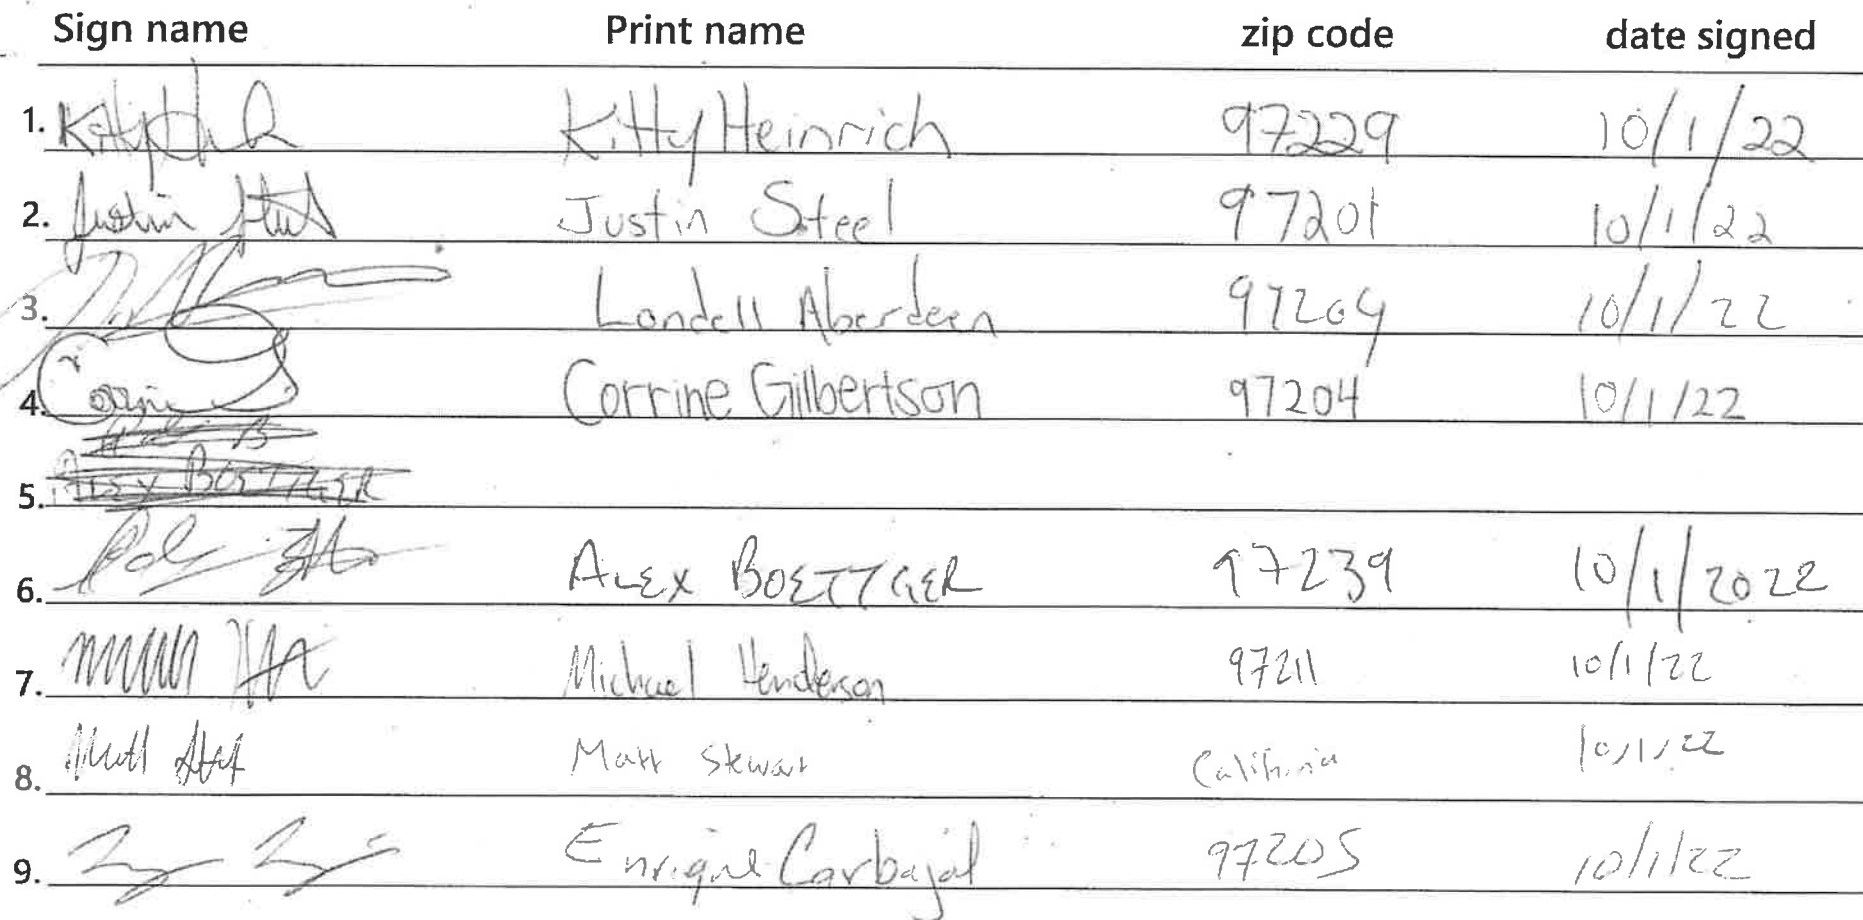 Sign name Print name zip code date signed
1. Kitty Heinrich 97229 10/1/22
2. Justin Steel Justin Steel 97201 10/1/22
3. Londell Aberdeen 97204 10/1/22
4. Corrine Corrine Gilbertson 97204 10/1/22
5. ALEX BOETTGER
6. ALEX BOETTGER 97239 10/1/2022
7. Michael Henderson 97211 10/1/22
8. Matt Stewart California 10/1/22
9. Enrique Carbajal 97205 10/1/22